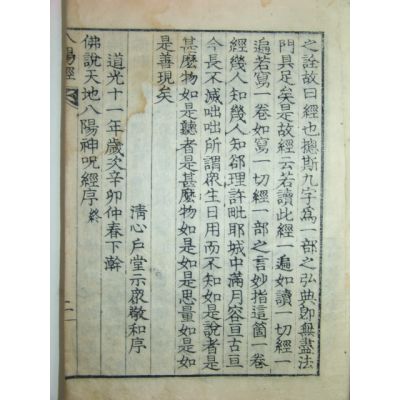 之詮故曰經也摠斯九字為一部之弘典卽無盡法
門具足矣是故經云若讀此經一遍如讀一切經一
遍若寫一卷如寫一切經一部之言妙指這箇一卷
經幾人知幾人知郤理許毗耶城中滿月容亘古亘
今長不滅咄咄所謂衆生日用而不知如是說者是
甚麽物如是聽者是甚麽物如是如是思量如是如
是善現矣
清心戶堂示衆敬和序
道光十一年歲次辛卯仲春下澣
佛說天地八陽神呪經序 終
八陽經